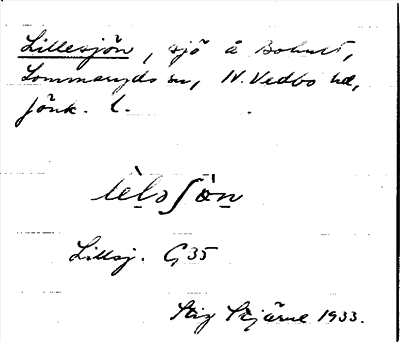 Lillesjön, sjö å Bohult,
Lommaryds sn, N. Vedbo hd,
Jönk. l.
lìelə ʃö̀n
Lillsj. G35
Stig Skjärne 1933.